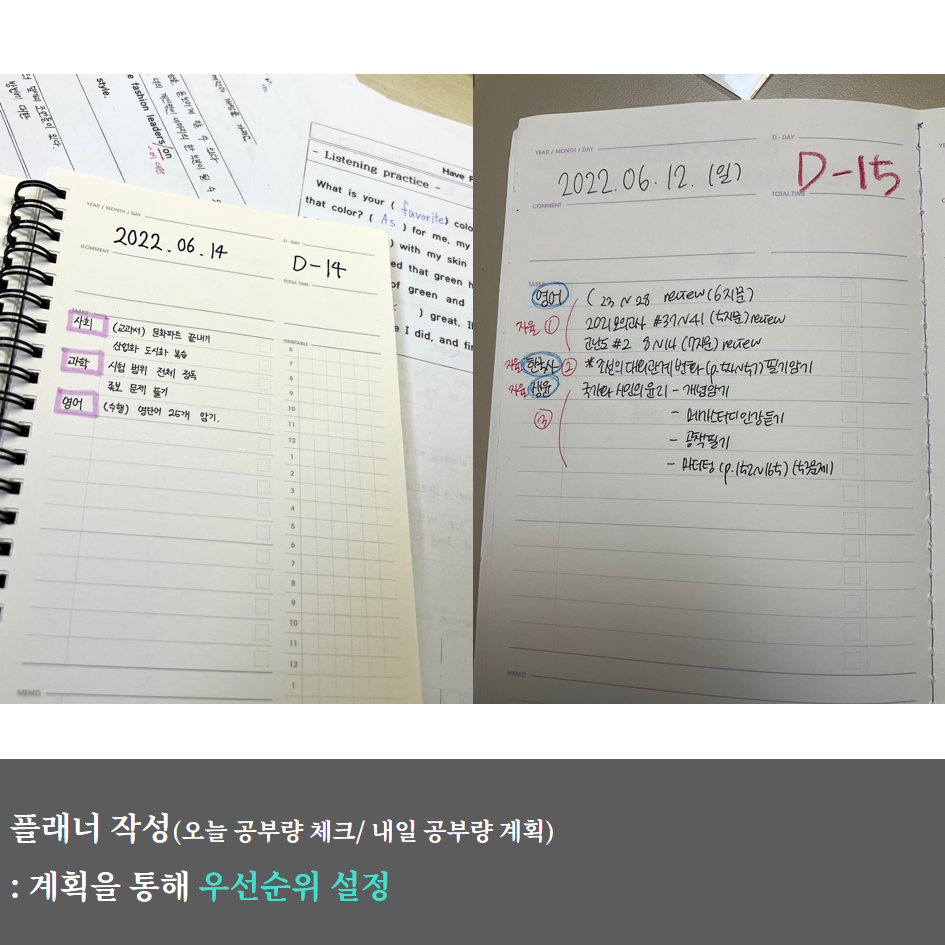 style.
e fashion leaders/on
- Listening practice -
Have F
What is your ( favorite) colo
that color? ( As ) for me, my
) with my skin
ed that green h
of green and
) great. I
e I did, and fin
YEAR / MONTH / DAY
2022.06.14
D - DAY
D-14
COMMENT
TOTAL TIME
TASKS
TIMETABLE
사회 (교과서) 문화파트 끝내기
산업화 도시화 복습
과학 시험 범위 전체 정독
족보 문제 풀기
영어 (수행) 영단어 25개 암기.
6
7
8
9
10
11
12
1
2
3
4
5
6
7
8
9
10
11
12
1
MEMO
YEAR / MONTH / DAY
2022.06.12.(일)
D - DAY
D-15
COMMENT
TOTAL TIME
TASKS
영어 ( 23 ~ 28 review (6지문)
자율 ① 2021 모의고사 #37~41 (5지문) review
고난도 #2 8~14 (7지문) review
자율 한국사 ② *조선의 대외관계 변화 필기암기
자율 생윤 국가와 시민의 윤리 - 개념암기
③ - 메가스터디 인강듣기
- 공책필기
- (p.152~165) (53문제)
MEMO
플래너 작성(오늘 공부량 체크/ 내일 공부량 계획)
: 계획을 통해 우선순위 설정